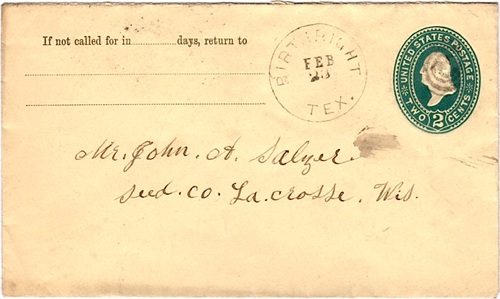 If not called for in ............ days, return to
BIRTHRIGHT
FEB
23
TEX.
UNITED STATES POSTAGE
TWO 2 CENTS
Mr. John. A. Salzer
Seed. Co. La. Crosse. Wis.